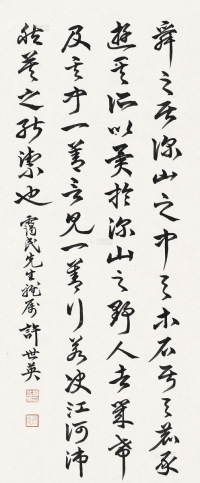 舜之居深山之中与木石居与鹿豕
遊其所以異於深山之野人者幾希
及其聞一善言見一善行若決江河沛
然莫之能禦也 靄民先生雅属 許世英